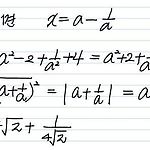 x = a - 1/a
a² - 2 + 1/a² + 4 = a² + 2 +
a + 1/a)² = |a + 1/a| = a
√2 + 1/(4√2)